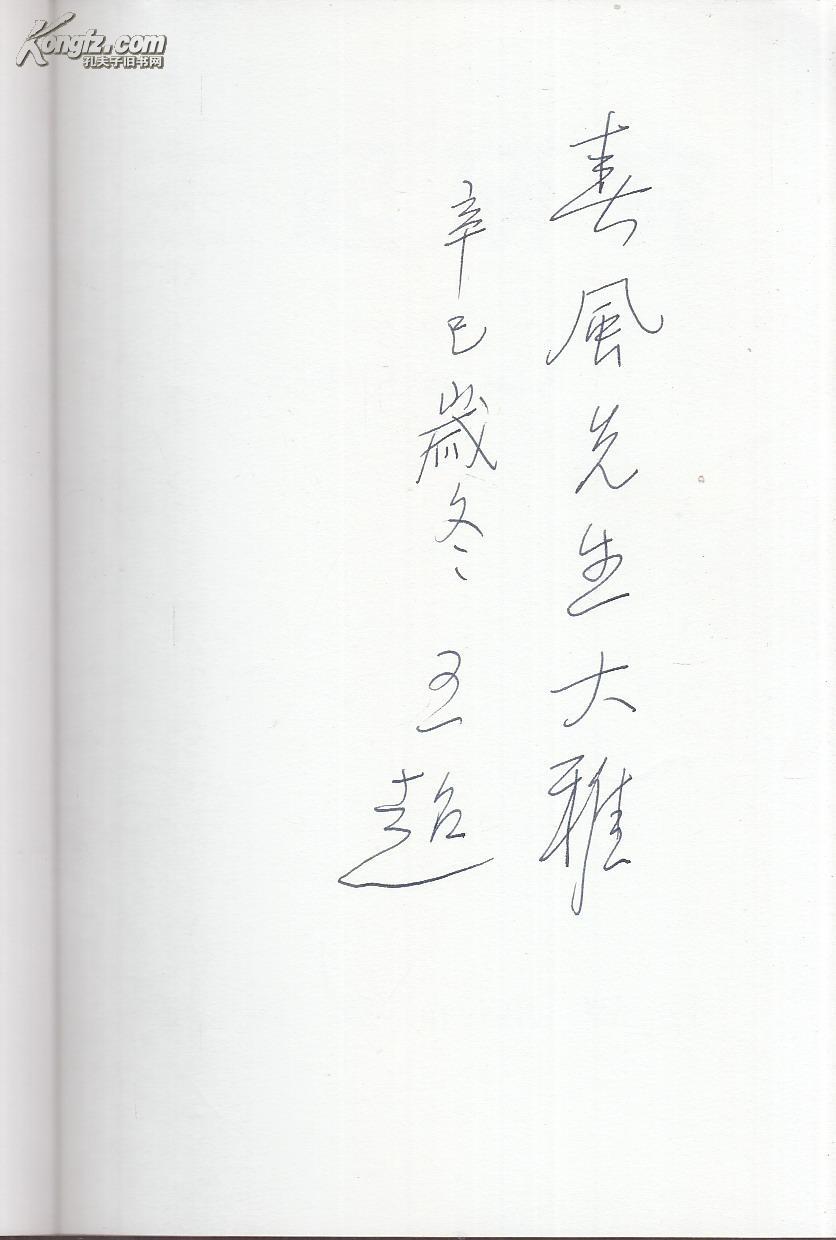 Kongfz.com
孔夫子旧书网
春風先生大雅
辛巳歲冬 王超